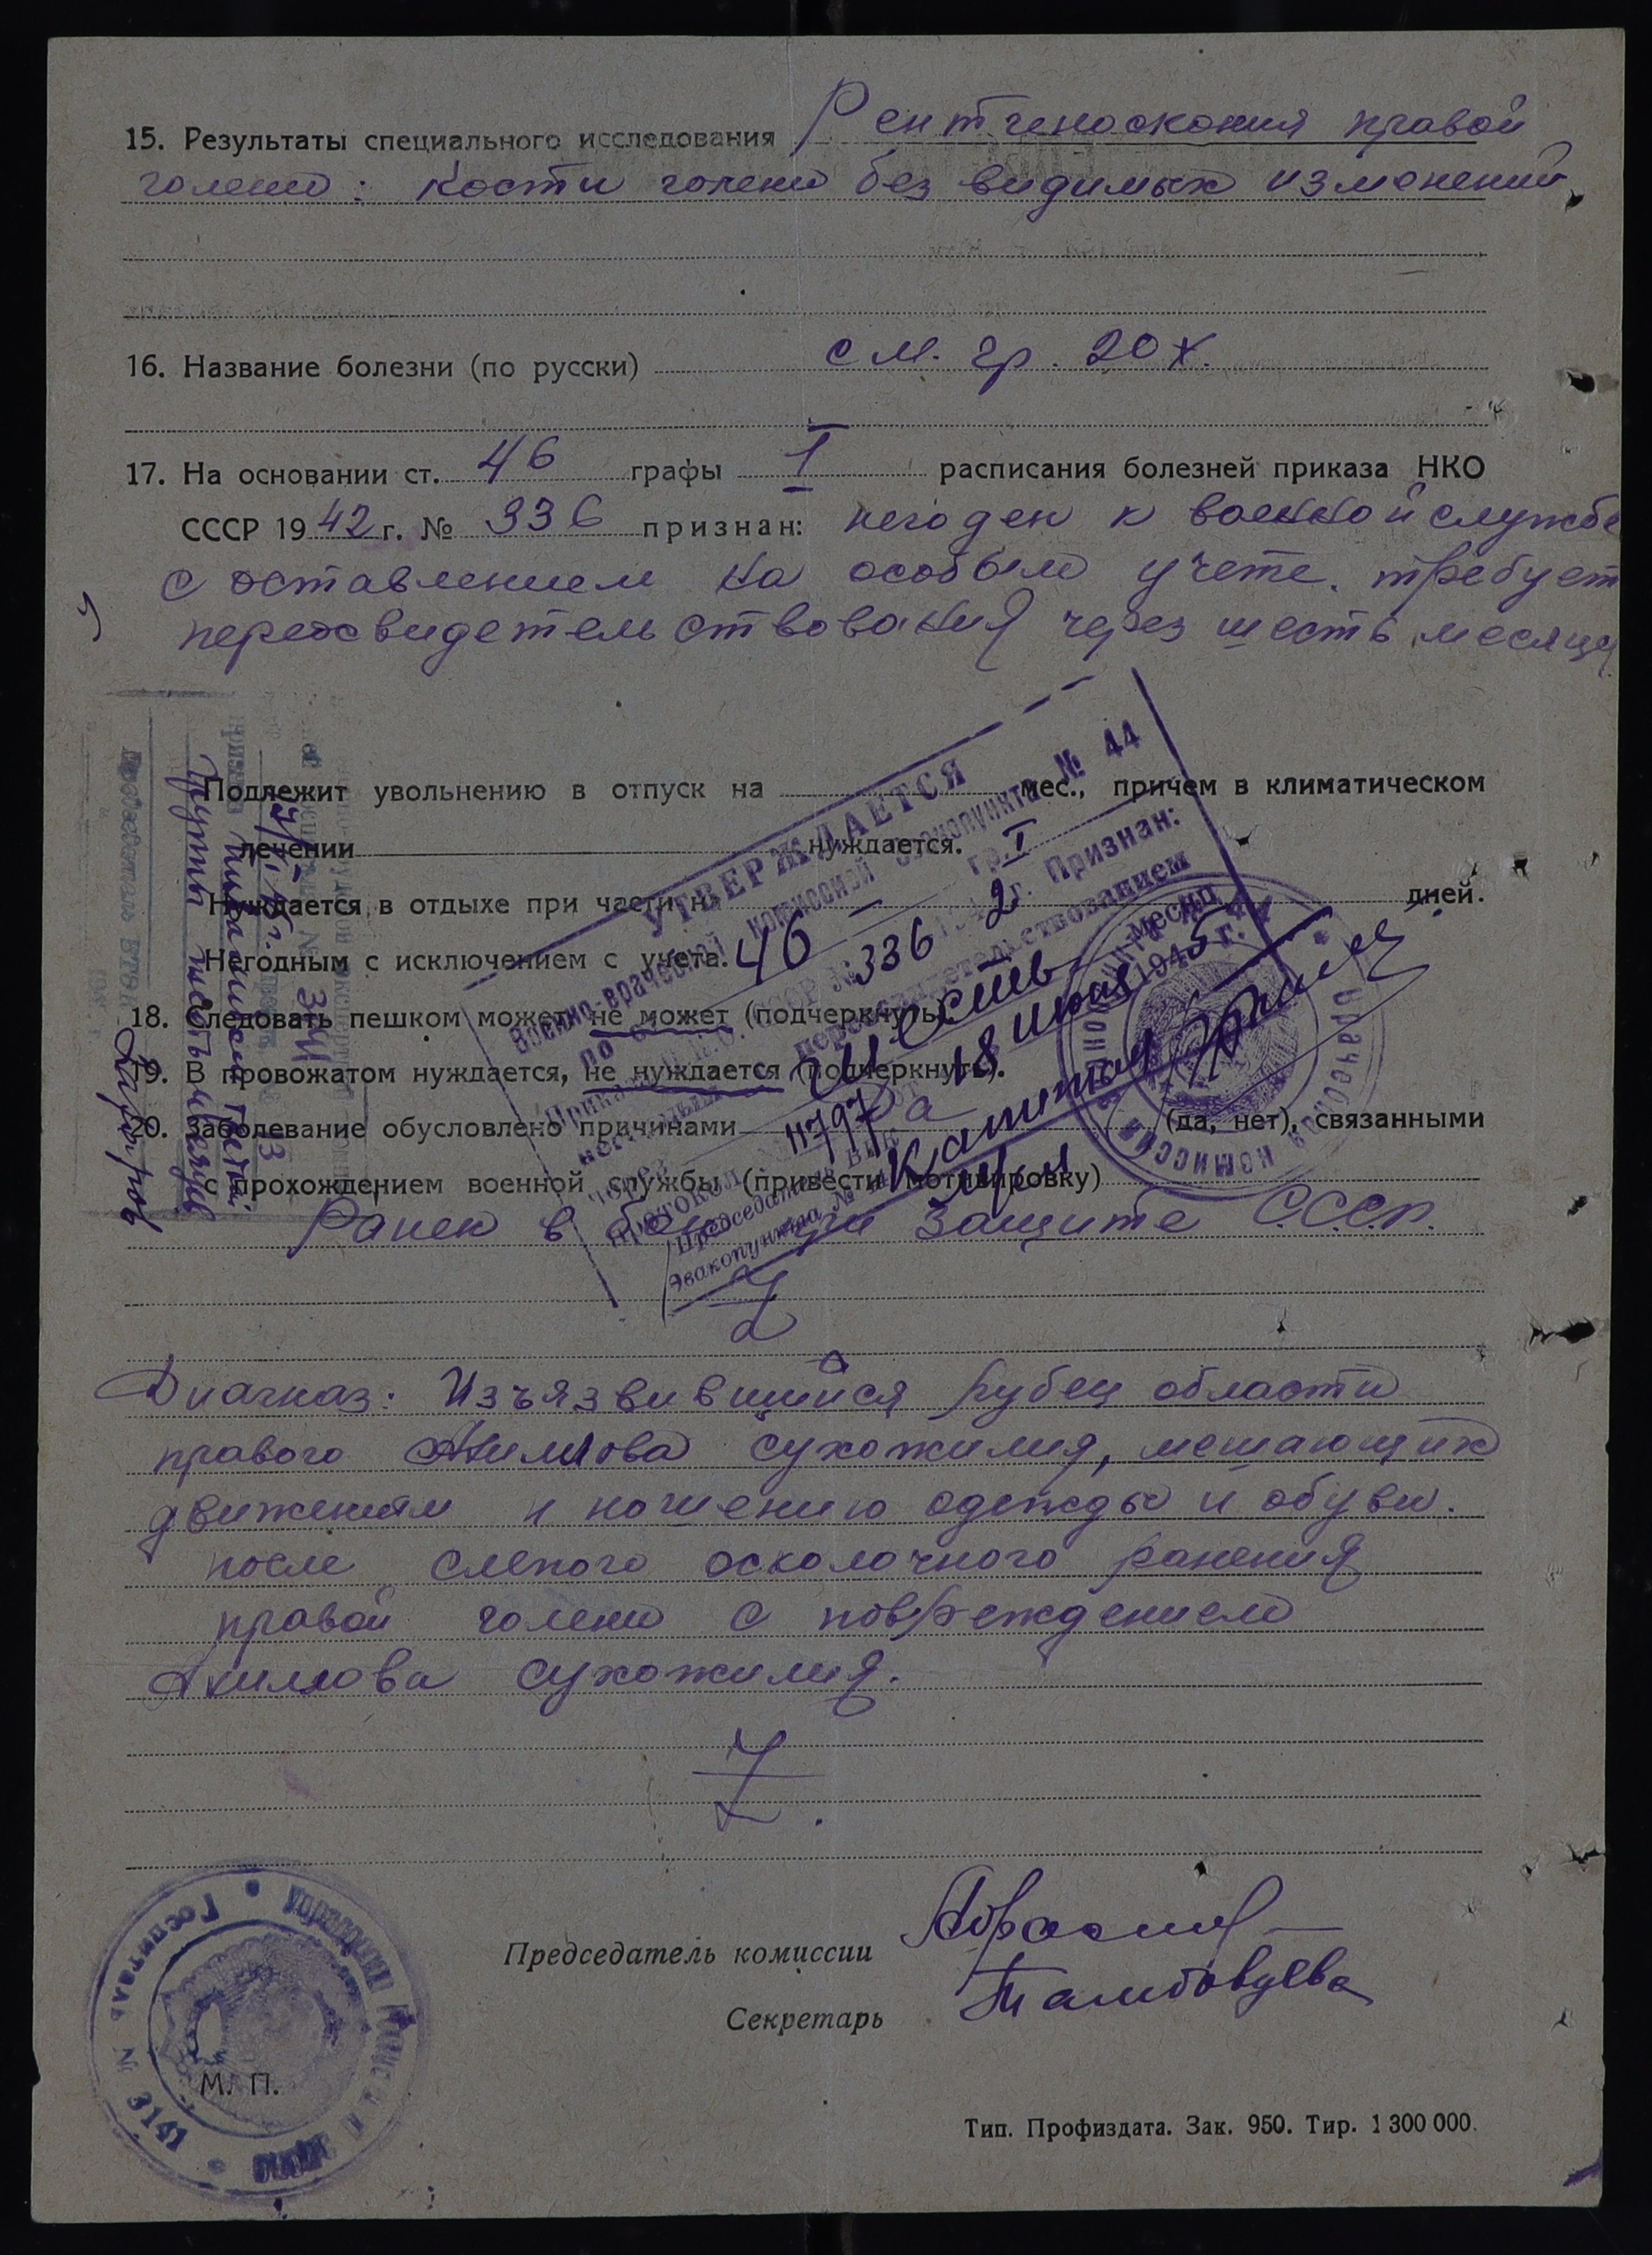 15. Результаты специального исследования Рентгеноскопия правой
голени: Кости голени без видимых изменений
16. Название болезни (по русски) см. гр. 20х.
17. На основании ст. 46 графы I расписания болезней приказа НКО
СССР 1942 г. № 336 признан: негоден к военной службе
с оставлением на особом учете. требует
переосвидетельствования через шесть месяцев
Подлежит увольнению в отпуск на мес., причем в климатическом
лечении нуждается.
Нуждается в отдыхе при части на дней.
Негодным с исключением с учета.
18. Следовать пешком может, не может (подчеркнуть).
19. В провожатом нуждается, не нуждается (подчеркнуть).
20. Заболевание обусловлено причинами да (да, нет), связанными
с прохождением военной службы (привести мотивировку)
Ранен в бою при защите С.С.С.Р.
УТВЕРЖДАЕТСЯ
Военно-врачебной комиссией эвакопункта № 44
по ст. 46 гр. I
Приказа Н.К.О. СССР № 336 1942 г. Признан:
переосвидетельствованием
через шесть месяц
Протокол № 4797 18 июня 1945 г.
Председатель ВВК
Эвакопункта № 44 Капитан м/с
Диагноз: Изъязвившийся рубец области
правого Ахиллова сухожилия, мешающих
движениям и ношению одежды и обуви.
после слепого осколочного ранения
правой голени с повреждением
Ахиллова сухожилия.
Председатель комиссии
Секретарь
М. П.
Госпиталь № 3141
Тип. Профиздата. Зак. 950. Тир. 1 300 000.